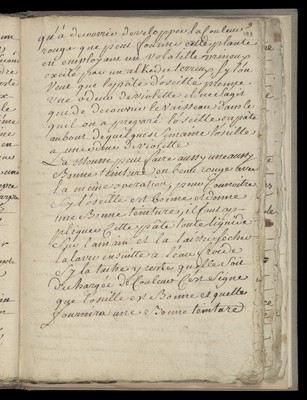 qu'a decouvrir developper la Couleur
rouge que peut fournir cette plante
en employant un volatille urineux
excité par un alkali terreux, sy l'on
veut que la pate d'orseille prenne
une odeur de violette il ne s'agit
que de decouvrir le vaisseau dans le
quel on a preparé l'orseille en pate
au bout de quelques semaine l'orseille
a une odeur de violette
La mousse peut faire aussy une aussy
Bonne teinture en beau rouge avec
la même operation, pour connoitre
sy l'orseille est bonne et donne
une Bonne teinture, il faut ap
pliquer cette pate toute liquide
sur la main et la laisser secher
la laver ensuitte a l'eau froide
Sy la tache y reste qu'elle soit
dechargée de Couleur C'est Signe
que l'orseille est Bonne et quelle
fournira une Bonne teinture